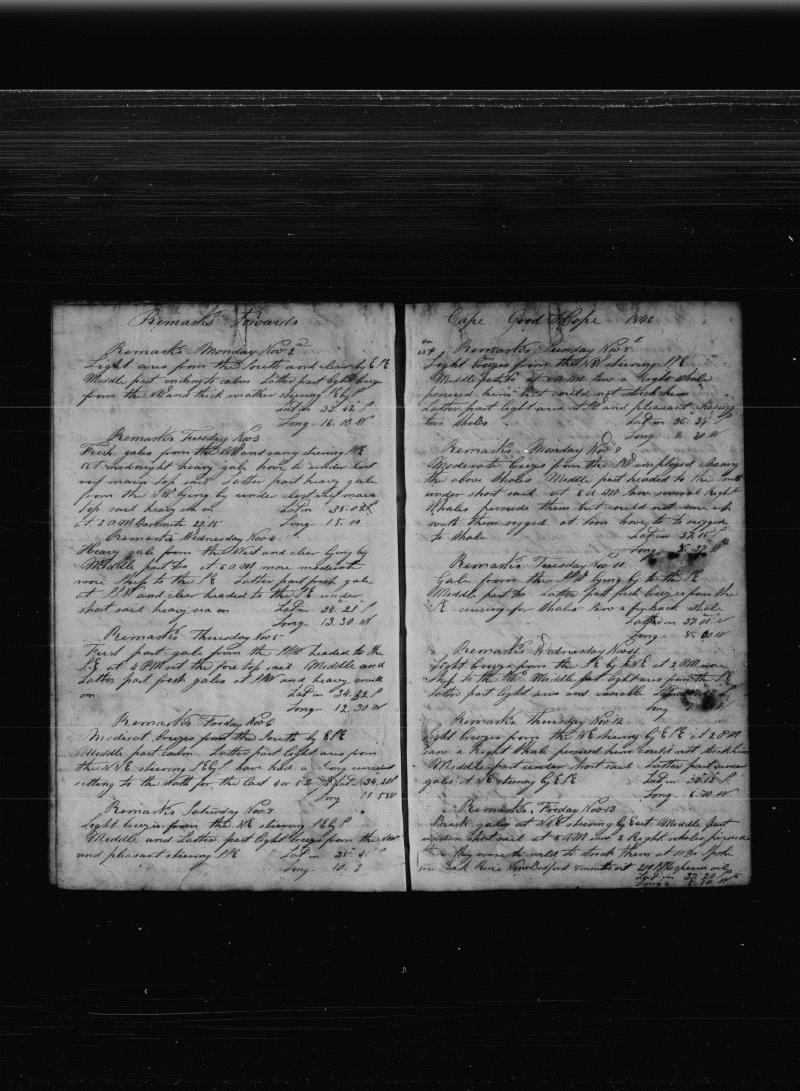 Remarks Towards
Remarks Monday Nov 2d
Light airs from the South and clear by E SE
Middle part calm Latter part light breeze
from the NE and thick weather steering SEbyS
Lat in 33.42 S
Long 16.10 W
Remarks Tuesday Nov 3
Fresh gales from the NW and steering SE
At midnight heavy gale hove to under close
reef main top sail Latter part heavy gale
from the SW lying by under close reef main
Top sail heavy sea on Lat in 35.03 S
at 2 AM Barometer 29.15 Long 15.00
Remarks Wednesday Nov 4
Heavy gale from the West and clear lying by
Middle part Do at 6 AM more moderate
wore ship to the SE Latter part fresh gale
at SSW and clear headed to the SE under
short sail heavy sea on Lat in 34.21 S
Long 13.30 W
Remarks Thursday Nov 5
First part gale from the SSW headed to the
SE at 4 PM set the fore top sail Middle and
Latter part fresh gales at SSW and heavy swell
on Lat in 34.32 S
Long 12.30 W
Remarks Friday Nov 6
Moderat breezes from the South by ESE
Middle part calm Latter part light airs from
the NNE steering SEbyS have had a strong current
setting to the North for the last 4 or 5 Lat 34.20 S
Long 11.53 W
Remarks Saturday Nov 7
Light breezes from the NE steering SEbyS
Middle and Latter part light breezes from the NW
and pleasant steering SE Lat in 35
Long 10.2
Cape Good Hope 1846
Remarks Sunday Nov 8
Light breezes from the NW steering SE
Middle part Do at 6 AM saw a Right Whale
persued him but could not strike him
Latter part light airs at W and pleasant chasing
two whales Lat in 36.34 S
Long
Remarks Monday Nov 9
Moderate breezes from the NW employed chasing
the above Whales Middle part headed to the South
under short sail at 6 AM saw several Right
Whales persued them but could not come up
with them at noon hove to
to whale Lat in 37.15 S
Long 8.37 W
Remarks Tuesday Nov 10
Gale from the SSW lying by to the SE
Middle part Do Latter part fresh breezes from the
SE cruising for Whales saw a finback whale
Lat in 37.01 S
Long 8.00 W
Remarks Wednesday Nov 11
Light breezes from the SE by ENE at 2 PM wore
ship to the Middle part light airs from the SE
Latter part light airs and variable
Long
Remarks Thursday Nov 12
Light breezes from the NE steering by ESE at 2 PM
saw a Right Whale persued him could not strike him
Middle part under short sail Latter part
gales at NE steering by ESE Lat in 37.13 S
Long 6.40 W
Remarks Friday Nov 13
Brisk gales at NNE steering by East Middle part
under short sail at 6 AM saw 2 Right whales persued
they were to wild to strike them at 10 Do spoke
Bark New Bedford 8 months out sperm oil
Lat in 37.20 S
Long